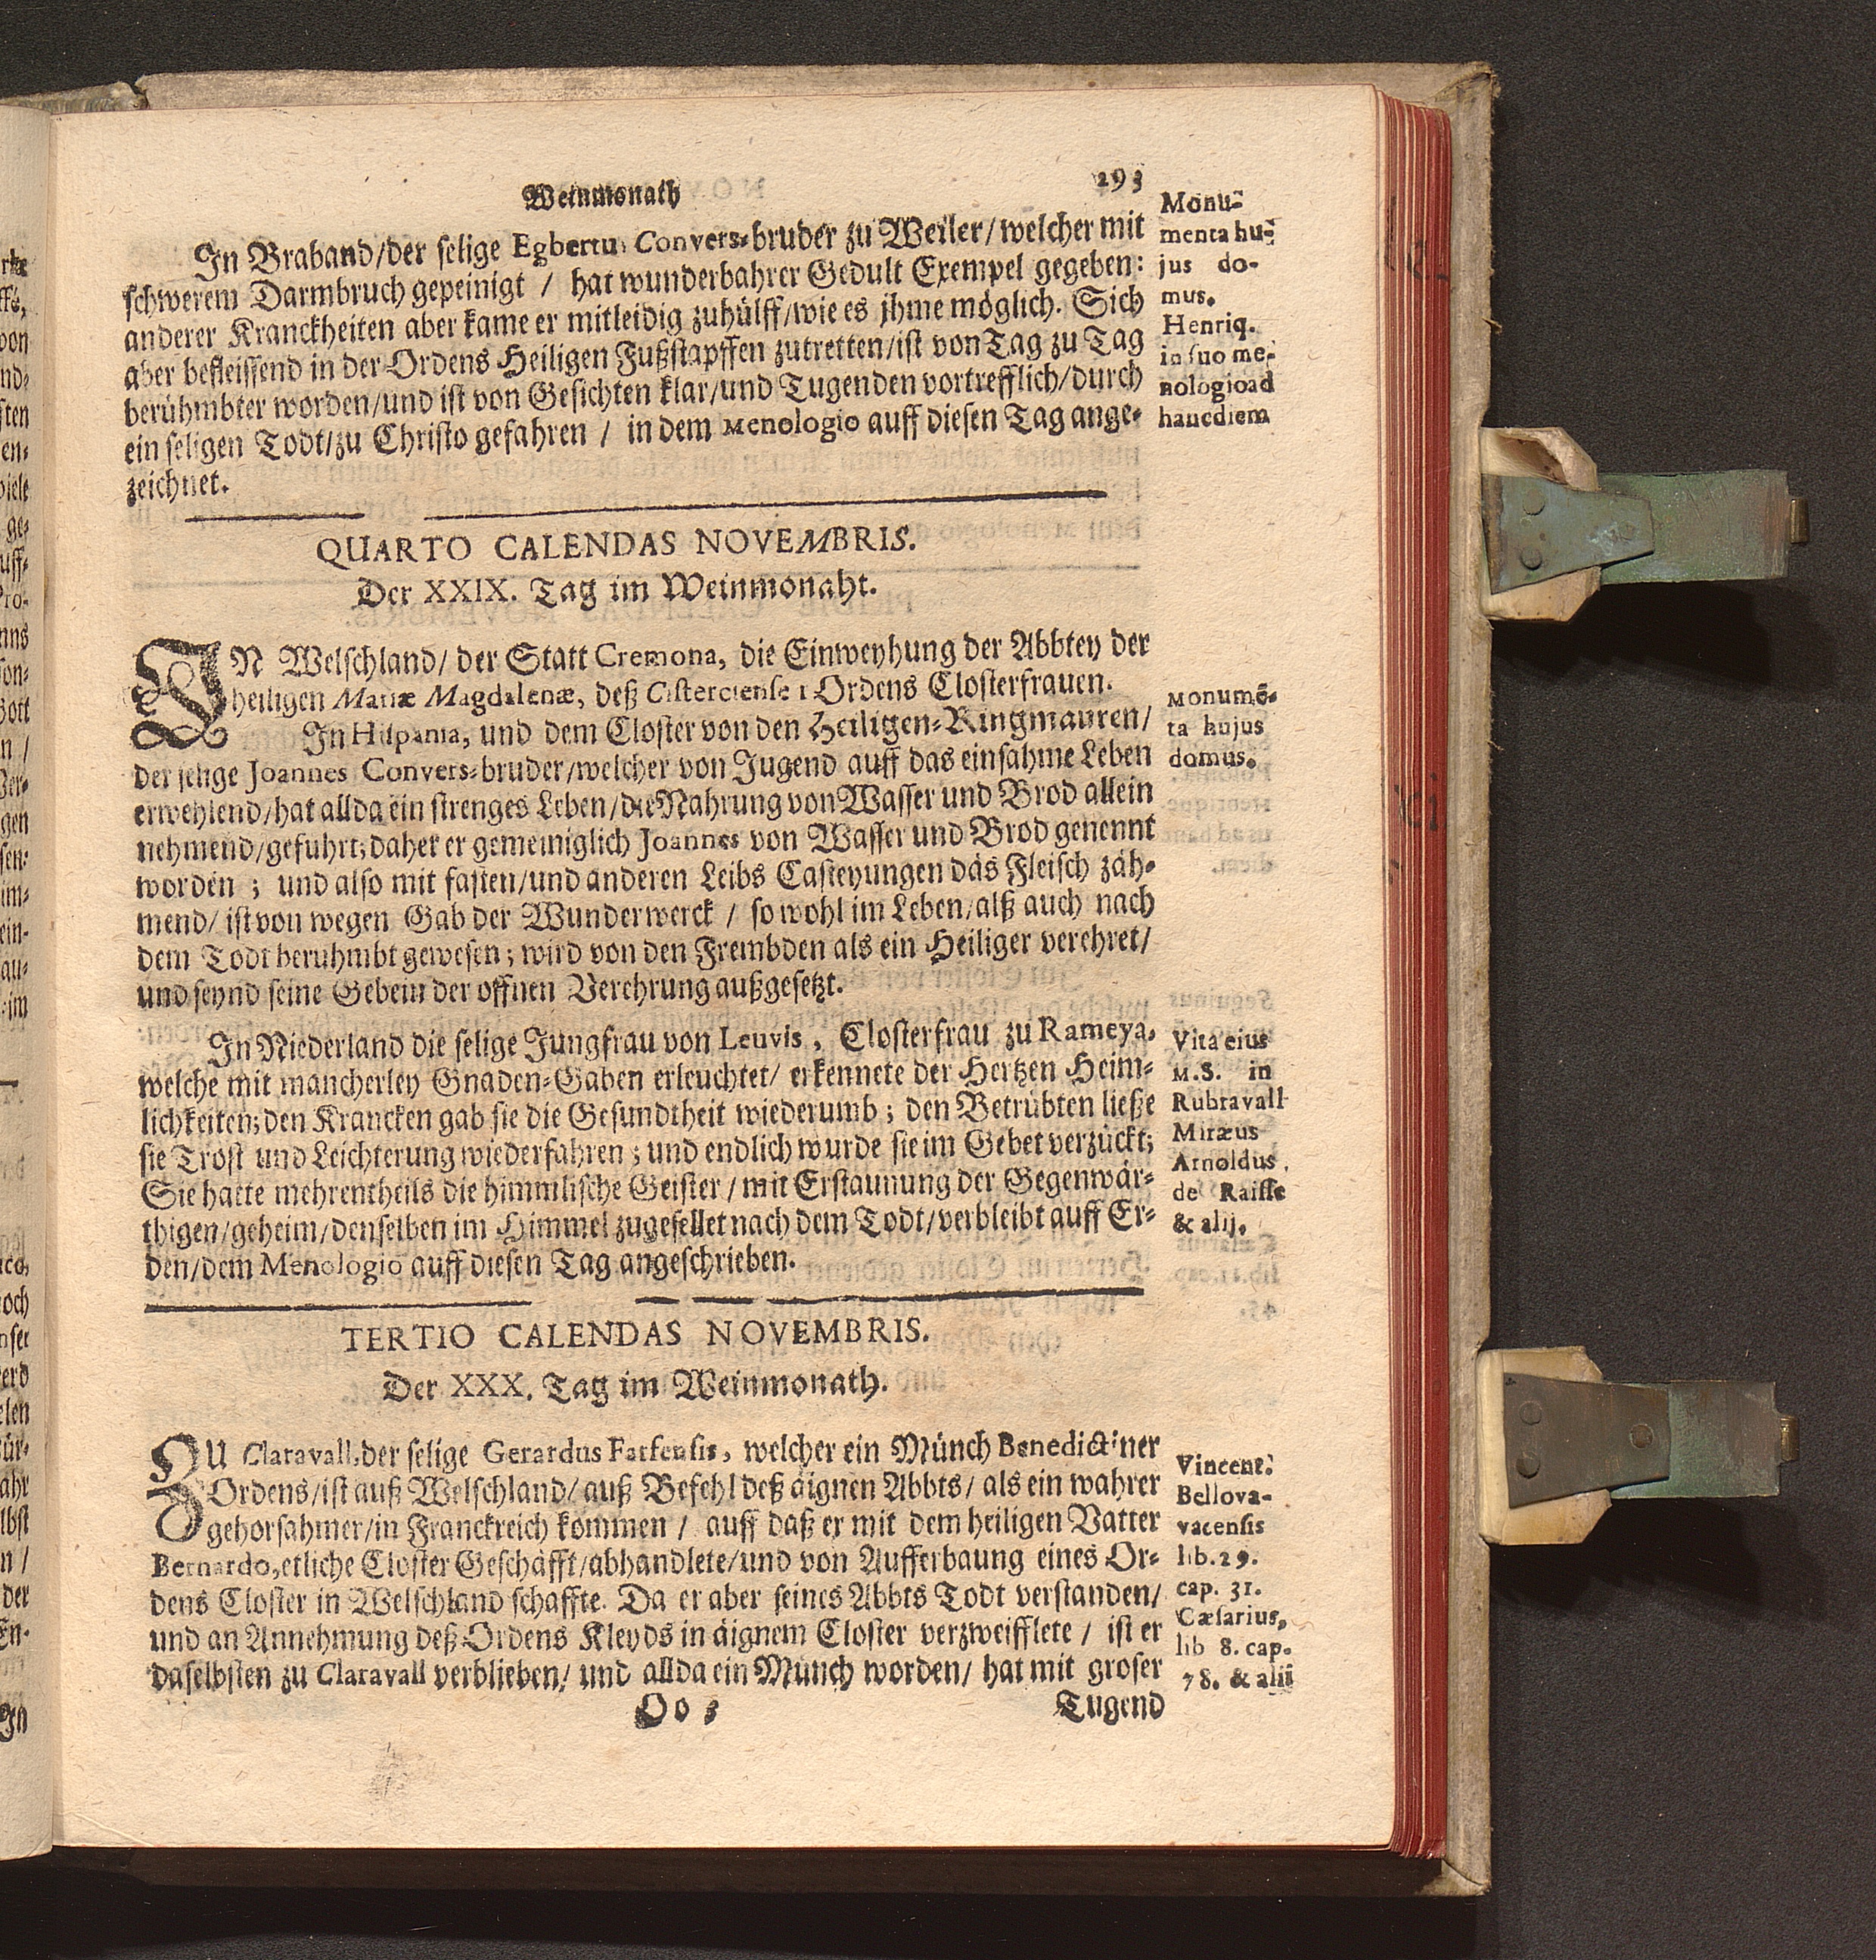 Weinmonath 293
In Braband/der selige Egbertus Convers-bruder zu Weiler/welcher mit
schwerem Darmbruch gepeinigt / hat wunderbahrer Gedult Exempel gegeben:
anderer Kranckheiten aber kame er mitleidig zuhülff/wie es jhme möglich. Sich
aber befleissend in der Ordens Heiligen Fußstapffen zutretten/ist von Tag zu Tag
berühmbter worden/und ist von Gesichten klar/und Tugenden vortrefflich/durch
ein seligen Todt/zu Christo gefahren / in dem Menologio auff diesen Tag ange-
zeichnet.
Monu-
menta hu-
jus do-
mus.
Henriq.
in suo me-
nologio ad
hancdiem
QUARTO CALENDAS NOVEMBRIS.
Der XXIX. Tag im Weinmonaht.
IN Welschland/ der Statt Cremona, die Einweyhung der Abbtey der
heiligen Mariæ Magdalenæ, deß Cisterciense r Ordens Closterfrauen.
In Hispania, und dem Closter von den Heiligen-Ringmauren/
der selige Joannes Convers-bruder/welcher von Jugend auff das einsahme Leben
erwehlend/hat allda ein strenges Leben/die Nahrung von Wasser und Brod allein
nehmend/geführt; daher er gemeiniglich Joannes von Wasser und Brod genennt
worden ; und also mit fasten/und anderen Leibs Casteyungen das Fleisch zäh-
mend/ ist von wegen Gab der Wunderwerck / so wohl im Leben/alß auch nach
dem Todt berühmbt gewesen ; wird von den Frembden als ein Heiliger verehret/
und seynd seine Gebein der offnen Verehrung außgesetzt.
Monumē-
ta hujus
domus.
In Niederland die selige Jungfrau von Leuvis, Closterfrau zu Rameya,
welche mit mancherley Gnaden-Gaben erleuchtet/ erkennete der Hertzen Heim-
lichkeiten; den Krancken gab sie die Gesundtheit wiederumb ; den Betrübten ließe
sie Trost und Leichterung wiederfahren ; und endlich wurde sie im Gebet verzückt;
Sie hatte mehrentheils die himmlische Geister / mit Erstaunung der Gegenwär-
thigen/geheim/denselben im Himmel zugesellet nach dem Todt/verbleibt auff Er-
den/dem Menologio auff diesen Tag angeschrieben.
Vita eius
M.S. in
Rubravall
Miræus
Arnoldus
de Raisse
& alij.
TERTIO CALENDAS NOVEMBRIS.
Der XXX. Tag im Weinmonath.
ZU Claravall, der selige Gerardus Farfensis, welcher ein Münch Benedictiner
Ordens/ist auß Welschland/ auß Befehl deß äignen Abbts/ als ein wahrer
gehorsahmer/in Franckreich kommen / auff daß er mit dem heiligen Vatter
Bernardo, etliche Closter Geschäfft/abhandlete/und von Aufferbaung eines Or-
dens Closter in Welschland schaffte. Da er aber seines Abbts Todt verstanden/
und an Annehmung deß Ordens Kleyds in äignem Closter verzweifflete / ist er
daselbsten zu Claravall verblieben/ und allda ein Münch worden/ hat mit groser
Vincent.
Bellova-
vacensis
lib. 29.
cap. 31.
Cæsarius,
lib 8. cap.
78. & alii
Oo 3 Tugend